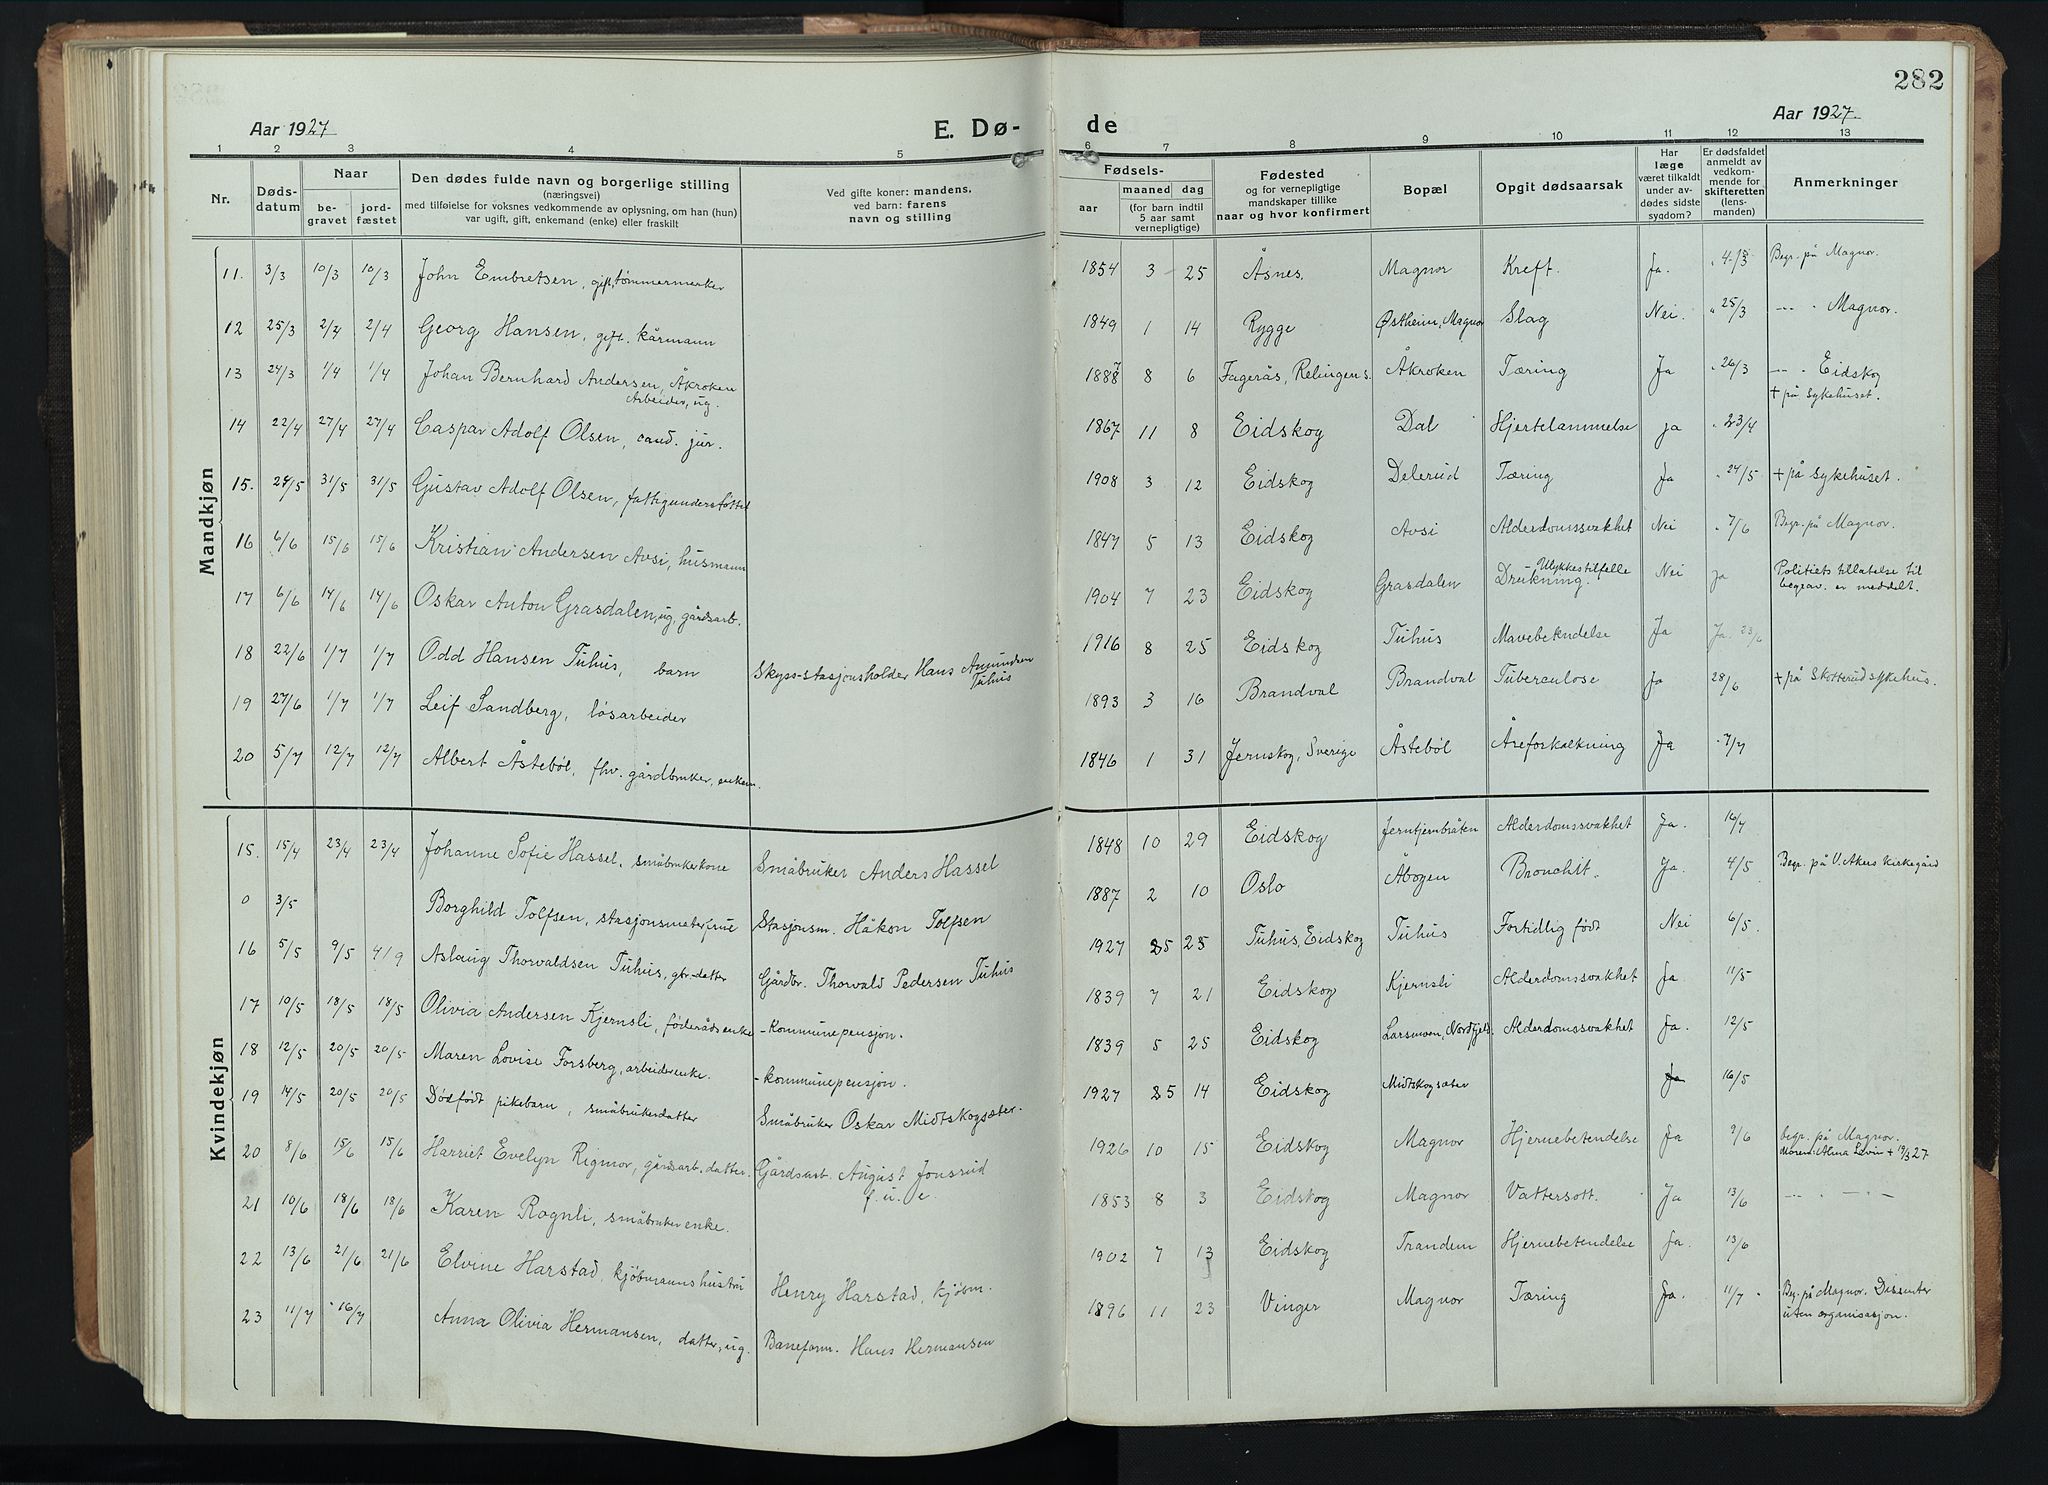 282
Aar 1927
E. Dø-
de
Aar 1927.
1 2 3 4 5 6 7 8 9 10 11 12 13
Nr.
Døds-
datum
Naar
be-
gravet
jord-
fæstet
Den dødes fulde navn og borgerlige stilling
(næringsvei)
med tilføielse for voksnes vedkommende av oplysning, om han (hun)
var ugift, gift, enkemand (enke) eller fraskilt
Ved gifte koner: mandens,
ved barn: farens
navn og stilling
Fødsels-
aar
maaned
dag
(for barn indtil
5 aar samt
vernepligtige)
Fødested
og for vernepligtige
mandskaper tillike
naar og hvor konfirmert
Bopæl
Opgit dødsaarsak
Har
læge
været tilkaldt
under av-
dødes sidste
sygdom?
Er dødsfaldet
anmeldt av
vedkom-
mende for
skifteretten
(lens-
manden)
Anmerkninger
Mandkjøn
11. 3/3 10/3 10/3 John Embretsen, gift, tømmermerker 1854 3 25 Åsnes. Magnor Kreft. Ja. " 4/3 Begr. på Magnor.
12 25/3 2/4 2/4 Georg Hansen, gift. kårmann 1849 1 14 Rygge Østheim, Magnor Slag Nei. " 25/3 — " — Magnor.
13 24/3 1/4 1/4 Johan Bernhard Andersen, Åkroken 1887 8 6 Fagerås, Relingen s. Åkroken Tæring Ja " 26/3 — " — Eidskog
Arbeider, ug. + på sykehuset.
14 22/4 27/4 27/4 Caspar Adolf Olsen, cand. jur. 1867 11 8 Eidskog Dal Hjertelammelse ja " 23/4
15. 24/5 31/5 31/5 Gustav Adolf Olsen, fattigunderstøttet 1908 3 12 Eidskog Delerud Tæring Ja " 24/5 + på Sykehuset.
16 6/6 15/6 15/6 Kristian Andersen Avsi, husmann 1847 5 13 Eidskog Avsi Alderdomssvakhet Nei " 7/6 Begr. på Magnor.
17 6/6 14/6 14/6 Oskar Anton Grasdalen, ug, gårdsarb. 1904 7 23 Eidskog Grasdalen Drukning. Ulykkestilfelle Nei ja Politiets tillatelse til
begrav. er meddelt.
18 22/6 1/7 1/7 Odd Hansen Tuhus, barn Skyss-stasjonsholder Hans Amundsen Tuhus 1916 8 25 Eidskog Tuhus Mavebetendelse Ja Ja. 23/6
19 27/6 1/7 1/7 Leif Sandberg, løsarbeider 1893 3 16 Brandval Brandval Tuberculose Ja 28/6 + på Skotterud sykehus.
20 5/7 12/7 12/7 Albert Åstebøl, fhv. gårdbruker, enkem. 1846 1 31 Jernskog, Sverige Åstebøl Åreforkalkning Ja " 7/7
Kvindekjøn
15. 15/4 23/4 23/4 Johanne Sofie Hassel, småbrukerkone Småbruker Anders Hassel 1848 10 29 Eidskog Jerntjernbråten Alderdomssvakhet Ja. 16/4
0 3/5 Borghild Tolfsen, stasjonsmesterfrue Stasjonsm. Håkon Tolfsen 1887 2 10 Oslo Åbogen Bronchit. Ja. 4/5 Begr. på V. Akers kirkegård
16 5/5 9/5 4/9 Aslaug Thorvaldsen Tuhus, gbr-datter Gårdbr. Thorvald Pedersen Tuhus 1927 5 25 Tuhus, Eidskog Tuhus Fortidlig født Nei 6/5
17 10/5 18/5 18/5 Olivia Andersen Kjernsli, føderådsenke - Kommunepensjon. 1839 7 21 Eidskog Kjernsli Alderdomssvakhet Ja. 11/5
18 12/5 20/5 20/5 Maren Lovise Forsberg, arbeiderenke. - Kommunepensjon. 1839 5 25 Eidskog Larsmoen, Nordfjeld Alderdomssvakhet Ja. 12/5
19 14/5 20/5 20/5 Dødfødt pikebarn, småbrukerdatter Småbruker Oskar Midtskogsæter. 1927 5 14 Eidskog Midtskogsæter Ja 16/5
20 8/6 15/6 15/6 Harriet Evelyn Rigmor, gårdsarb. datter. Gårdsarb. August Jonsrud 1926 10 15 Eidskog Magnor Hjernebetendelse Ja 9/6 begr. på Magnor.
f. u. e. Moren: Alma Lovin + 19/3 27.
21 10/6 18/6 18/6 Karen Rognli, småbrukerenke. 1853 8 3 Eidskog Magnor Vattersott. Ja 13/6 — " — " —
22 13/6 21/6 21/6 Elvine Harstad, kjøbmannshustru Henry Harstad, kjøbm. 1902 7 13 Eidskog Trandem Hjernebetendelse Ja. 13/6
23 11/7 16/7 Anna Olivia Hermansen, datter, ug. Baneform. Hans Hermansen 1896 11 23 Vinger Magnor Tæring Ja. 11/7 Beg. på Magnor. Dissenter
uten organisasjon.